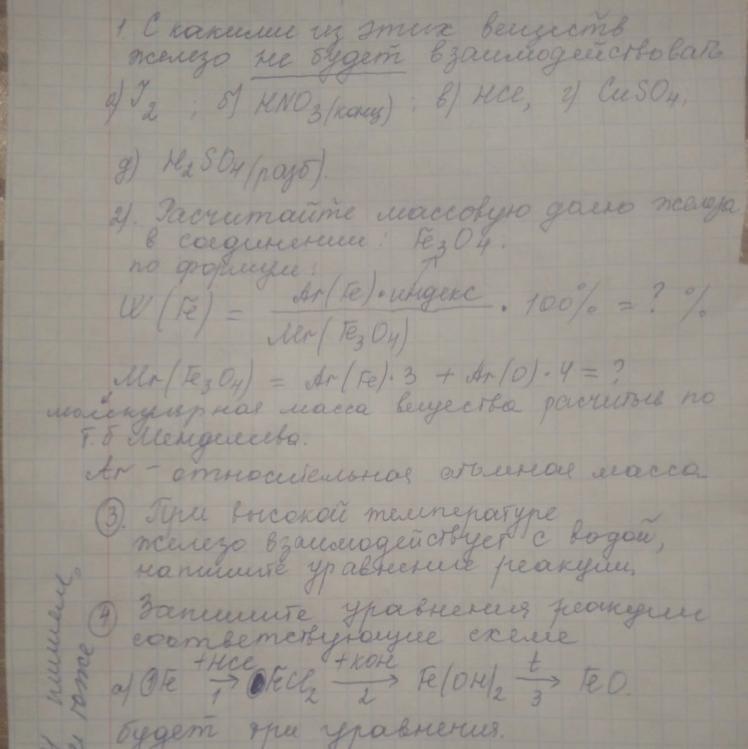 1. С какими из этих веществ
железо не будет взаимодействовать
а) I2 ; б) HNO3 (конц) ; в) HCl, г) CuSO4,
д) H2SO4 (разб).
2). Расчитайте массовую долю железа
в соединении: Fe3O4.
по формуле:
W(Fe) = Ar(Fe)·индекс / Mr(Fe3O4) · 100% = ? %
Mr(Fe3O4) = Ar(Fe)·3 + Ar(O)·4 = ?
молекулярная масса вещества по
т.б Менделеева.
Ar – относительная атомная масса
3. При высокой температуре
железо взаимодействует с водой,
напишите уравнение реакции
4 Запишите уравнения реакции
соответствующие схеме
а) Fe +HCl → 1 FeCl2 +KOH → 2 Fe(OH)2 t → 3 FeO.
будет три уравнения.
пишем
тоже